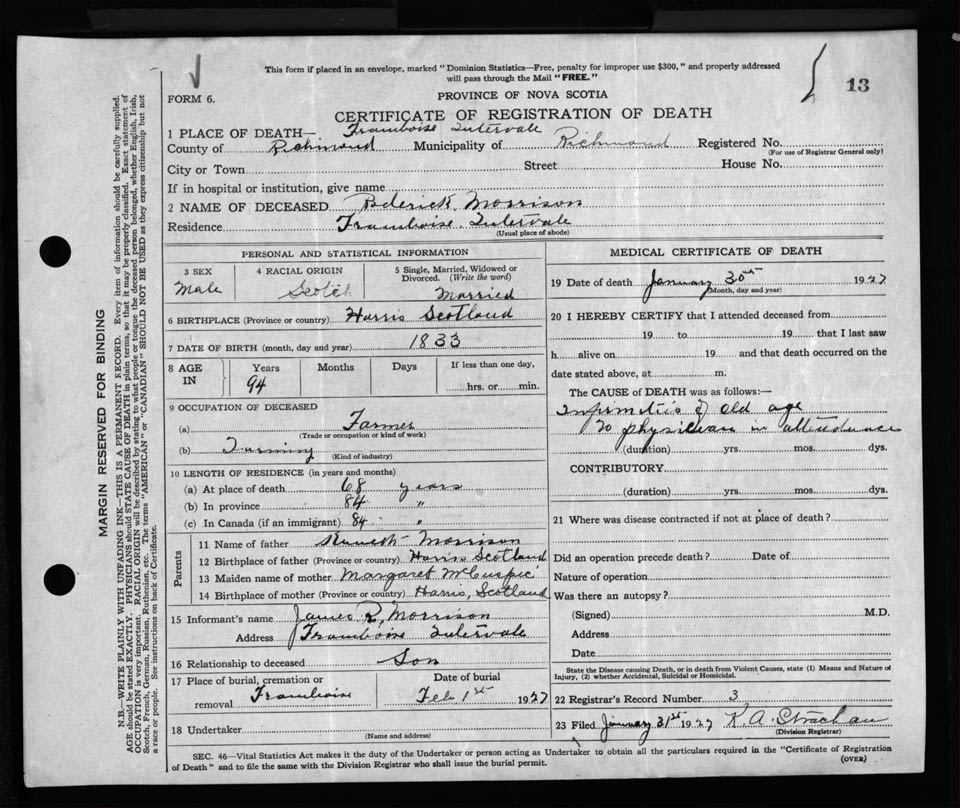 This form if placed in an envelope, marked "Dominion Statistics—Free, penalty for improper use $300," and properly addressed
will pass through the Mail "FREE."
13
FORM 6.
PROVINCE OF NOVA SCOTIA
CERTIFICATE OF REGISTRATION OF DEATH
1 PLACE OF DEATH— Framboise Intervale
County of Richmond Municipality of Richmond Registered No.
(For use of Registrar General only)
City or Town Street House No.
If in hospital or institution, give name
2 NAME OF DECEASED Roderick Morrison
Residence Framboise Intervale
(Usual place of abode)
PERSONAL AND STATISTICAL INFORMATION
3 SEX 4 RACIAL ORIGIN 5 Single, Married, Widowed or
Divorced. (Write the word)
Male Scotch Married
6 BIRTHPLACE (Province or country) Harris Scotland
7 DATE OF BIRTH (month, day and year) 1833
8 AGE IN Years Months Days If less than one day,
94 hrs. or min.
9 OCCUPATION OF DECEASED
(a) Farmer
(Trade or occupation or kind of work)
(b) Farming
(Kind of industry)
10 LENGTH OF RESIDENCE (in years and months)
(a) At place of death 68 years
(b) In province 84 "
(c) In Canada (if an immigrant) 84 "
Parents
11 Name of father Kenneth Morrison
12 Birthplace of father (Province or country) Harris Scotland
13 Maiden name of mother Margaret McCuspic
14 Birthplace of mother (Province or country) Harris, Scotland
15 Informant's name James R. Morrison
Address Framboise Intervale
16 Relationship to deceased Son
17 Place of burial, cremation or removal Date of burial
Framboise Feb 1st 1927
18 Undertaker
(Name and address)
MEDICAL CERTIFICATE OF DEATH
19 Date of death January 30th 1927
(Month, day and year)
20 I HEREBY CERTIFY that I attended deceased from
19 to 19, that I last saw
h alive on 19 and that death occurred on the
date stated above, at m.
The CAUSE of DEATH was as follows:—
Infirmities of old age
No physician in attendance
(duration) yrs. mos. dys.
CONTRIBUTORY
(duration) yrs. mos. dys.
21 Where was disease contracted if not at place of death?
Did an operation precede death? Date of
Nature of operation
Was there an autopsy?
(Signed) M.D.
Address
Date
State the Disease causing Death, or in death from Violent Causes, state (1) Means and Nature of
Injury, (2) whether Accidental, Suicidal or Homicidal.
22 Registrar's Record Number 3
23 Filed January 31st 1927 K. A. Strachan
(Division Registrar)
SEC. 46—Vital Statistics Act makes it the duty of the Undertaker or person acting as Undertaker to obtain all the particulars required in the "Certificate of Registration
of Death" and to file the same with the Division Registrar who shall issue the burial permit.
(OVER)
MARGIN RESERVED FOR BINDING
N.B.—WRITE PLAINLY WITH UNFADING INK—THIS IS A PERMANENT RECORD. Every item of information should be carefully supplied.
AGE should be stated EXACTLY. PHYSICIANS should STATE CAUSE OF DEATH in plain terms, so that it may be properly classified. Exact statement of
OCCUPATION is very important. RACIAL ORIGIN will be described by stating to what people or tongue the deceased person belonged, whether English, Irish,
Scotch, French, German, Russian, Ruthenian, etc. The terms "AMERICAN" or "CANADIAN" SHOULD NOT BE USED as they express citizenship but not
a race or people. See instructions on back of Certificate.